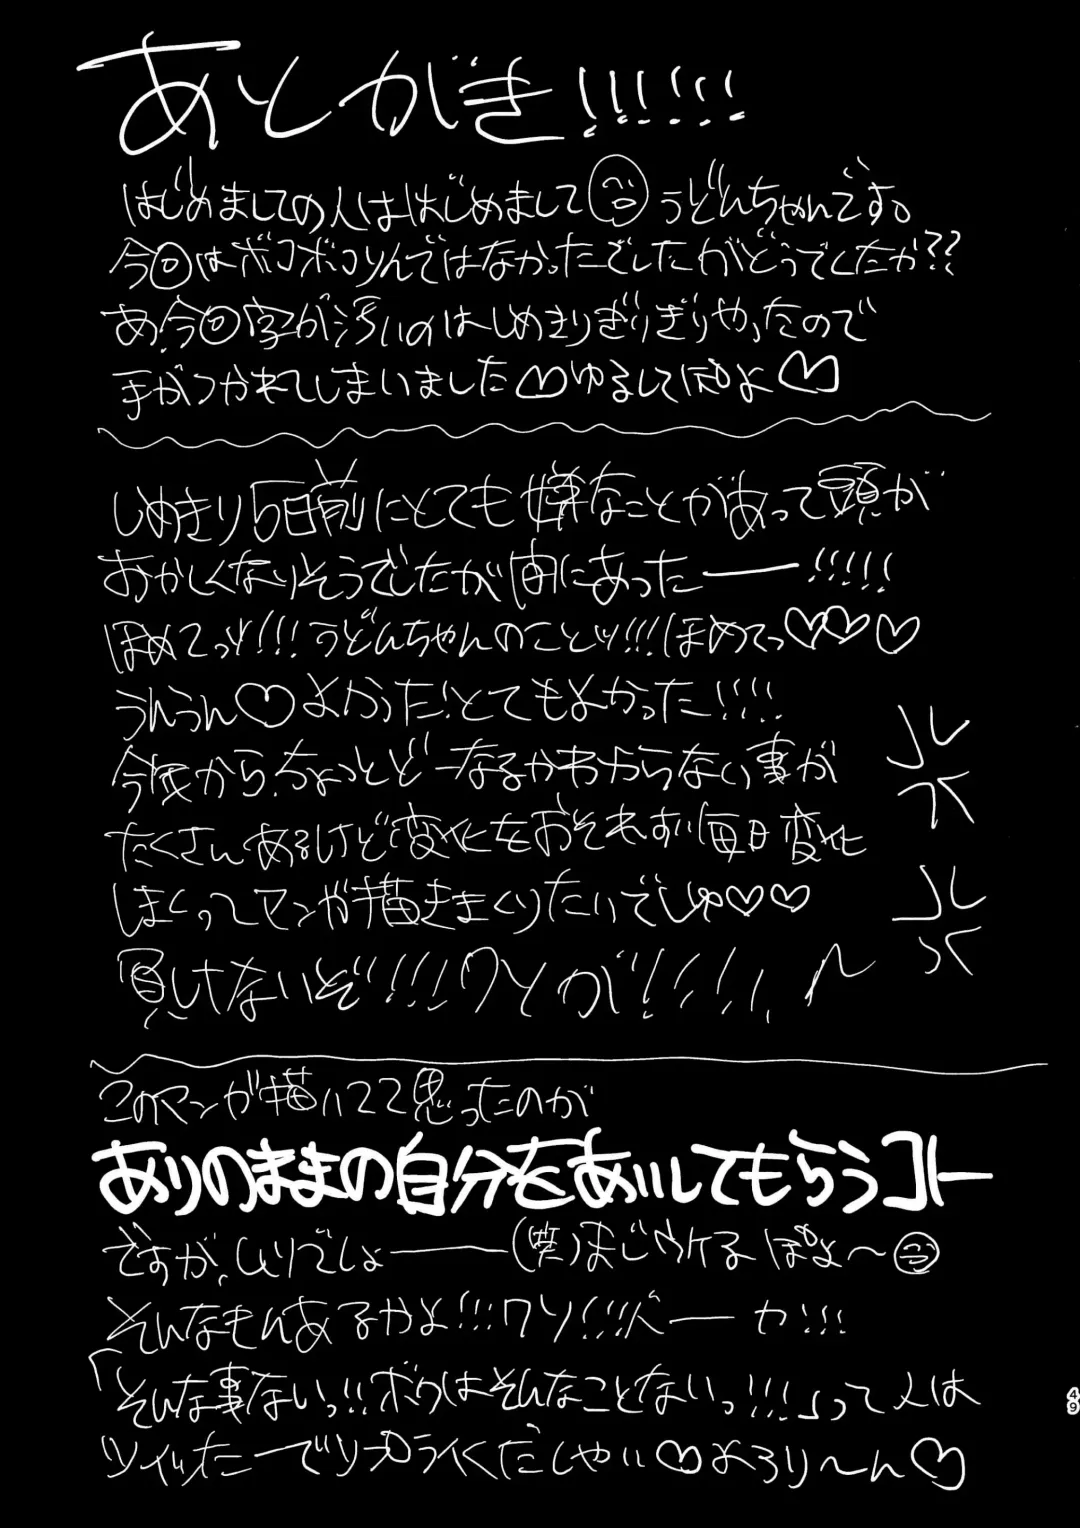 あとがき!!!!!!
はじめましての人ははじめまして うどんちゃんです。
今回はボコボコりんではなかったでしたがどうでしたか??
あ、今回字が汚いのはしめきりぎりぎりやったので
手がつかれてしまいました♡ゆるしてぽよ♡
しめきり5日前にとても嫌なことがあって頭が
おかしくなりそうでしたが間にあったーー!!!!!
ほめてッ!!!うどんちゃんのことッ!!!ほめてっ♡♡♡
うんうん♡よかった!とてもよかった!!!!
今後から、ちょっとどーなるかわからない事が
たくさんあるけど変化をおそれずに毎日変化
しまくってマンガ描きまくりたいでしゅ♡♡
負けないぞ!!!!クソが!!!!!
このマンガ描いてて思ったのが
ありのままの自分をあいしてもらうコトー
ですが、ムリでしょーー(笑)まじウケるぽよ〜
そんなもんあるかよ!!!クソ!!!バーカ!!!
「そんな事ないっ!!ボクはそんなことないっ!!!」って人は
ツイッターでリプライください♡よろり〜ん♡
49